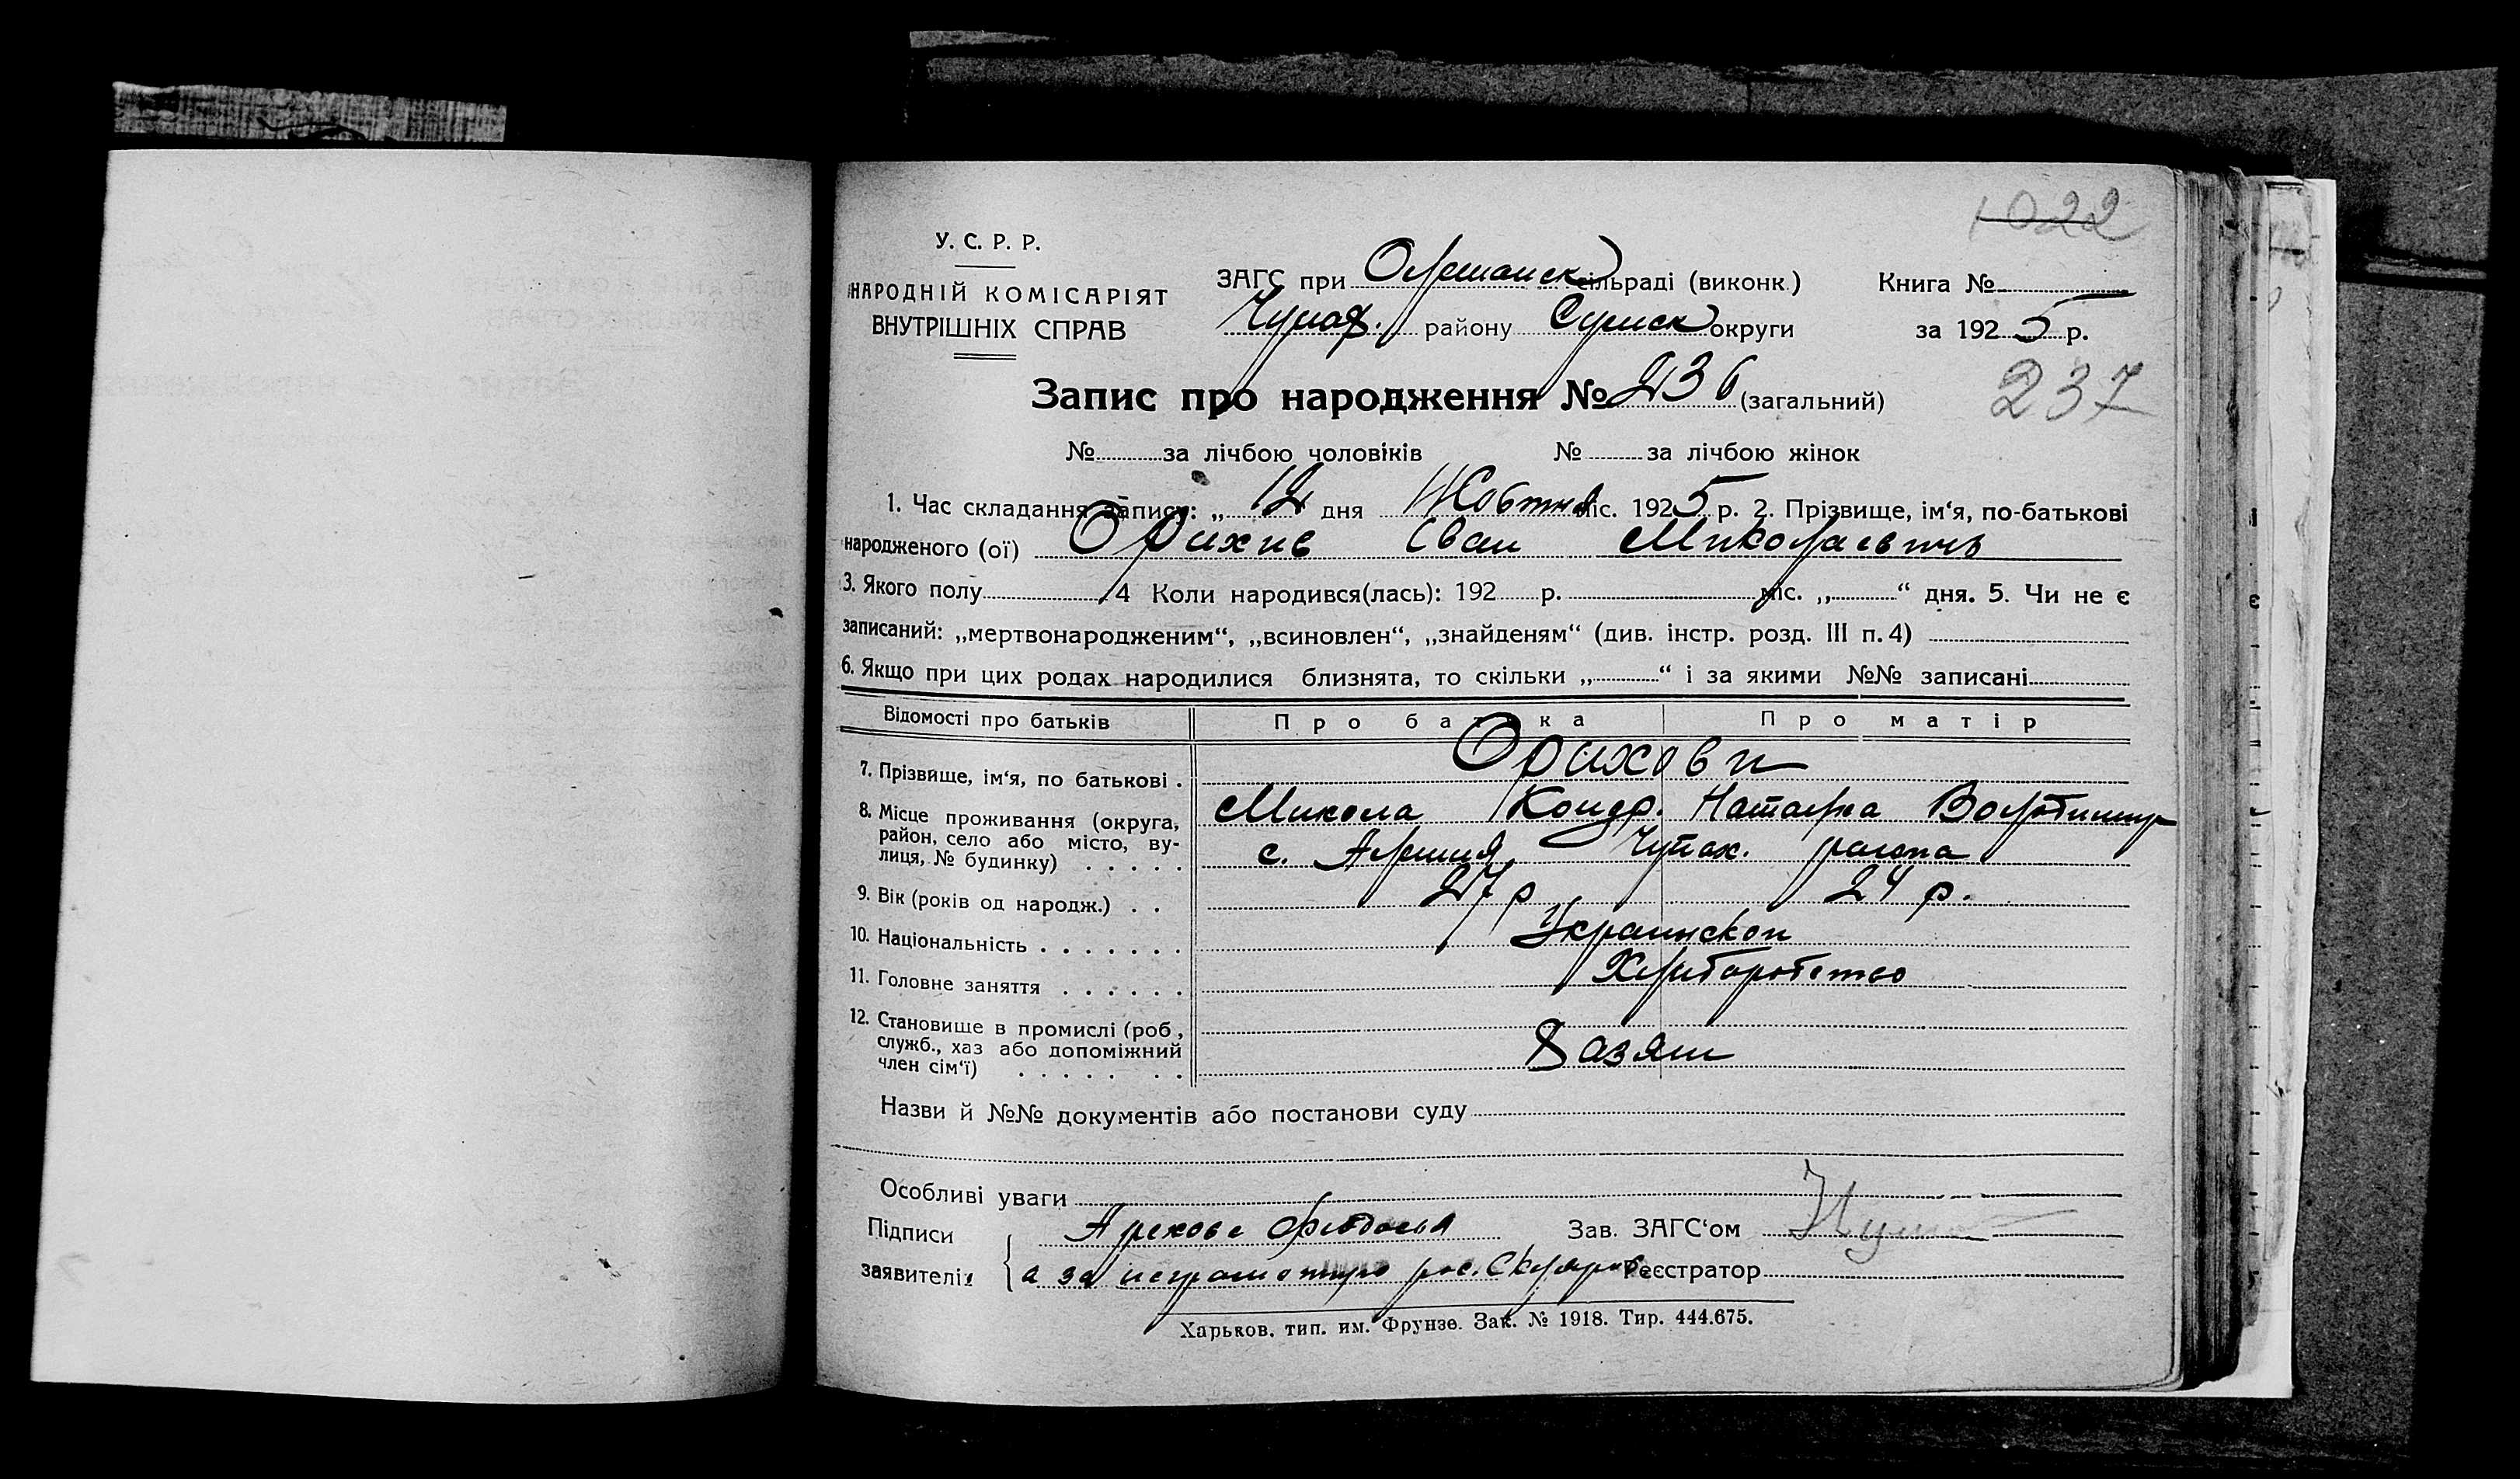 1022
У. С. Р. Р.
НАРОДНІЙ КОМІСАРІЯТ
ВНУТРІШНІХ СПРАВ
ЗАГС при Олешанск сільраді (виконк.)
району Сумск округи
Книга №
за 1925 р.
Запис про народження № 236 (загальний)
237
№ за лічбою чоловіків № за лічбою жінок
1. Час складання запису: „ 12 дня Жовтня міс. 1925 р. 2. Прізвище, ім‘я, по-батькові
народженого (ої) Орихив Іван Миколаевичь
3. Якого полу 4 Коли народився(лась): 192 р. міс. „ “ дня. 5. Чи не є
записаний: „мертвонародженим“, „всиновлен“, „знайденям“ (див. інстр. розд. III п. 4)
6. Якщо при цих родах народилися близнята, то скільки „ “ і за якими №№ записані
Відомості про батьків Про батька Про матір
7. Прізвище, ім‘я, по батькові . Орихови
Микола Кондр. Наталка
8. Місце проживання (округа, район, село або місто, вулиця, № будинку) . . . . . с. Чупах. района
9. Вік (років од народж.) . . 27 р 24 р.
10. Національність . . . . . . . Украинскои
11. Головне заняття . . . . . . Хлиборобство
12. Становище в промислі (роб., служб., хаз або допоміжний член сім‘ї) . . . . . . . Хазяин
Назви й №№ документів або постанови суду
Особливі уваги
Підписи Арехове Феодосья Зав. ЗАГС‘ом
заявителів { а за неграмотную рос. Скляров Реєстратор
Харьков. тип. им. Фрунзе. Зак. № 1918. Тир. 444.675.